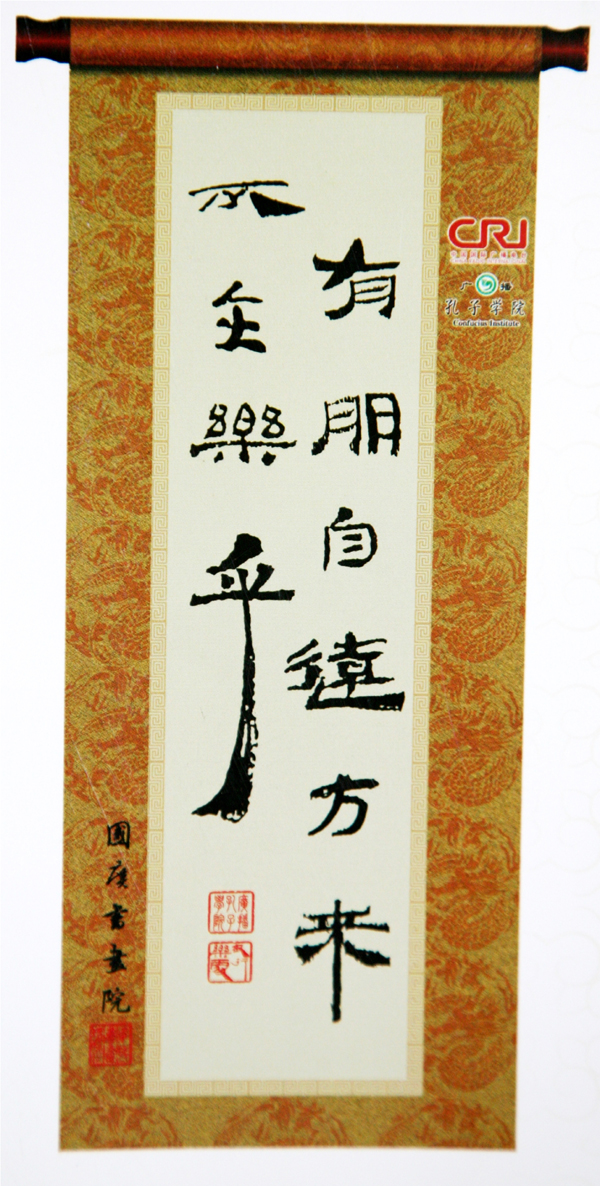 有朋自遠方来
不亦樂乎
CRI
广播
孔子學院
Confucius Institute
國廣書畫院
廣播孔子學院